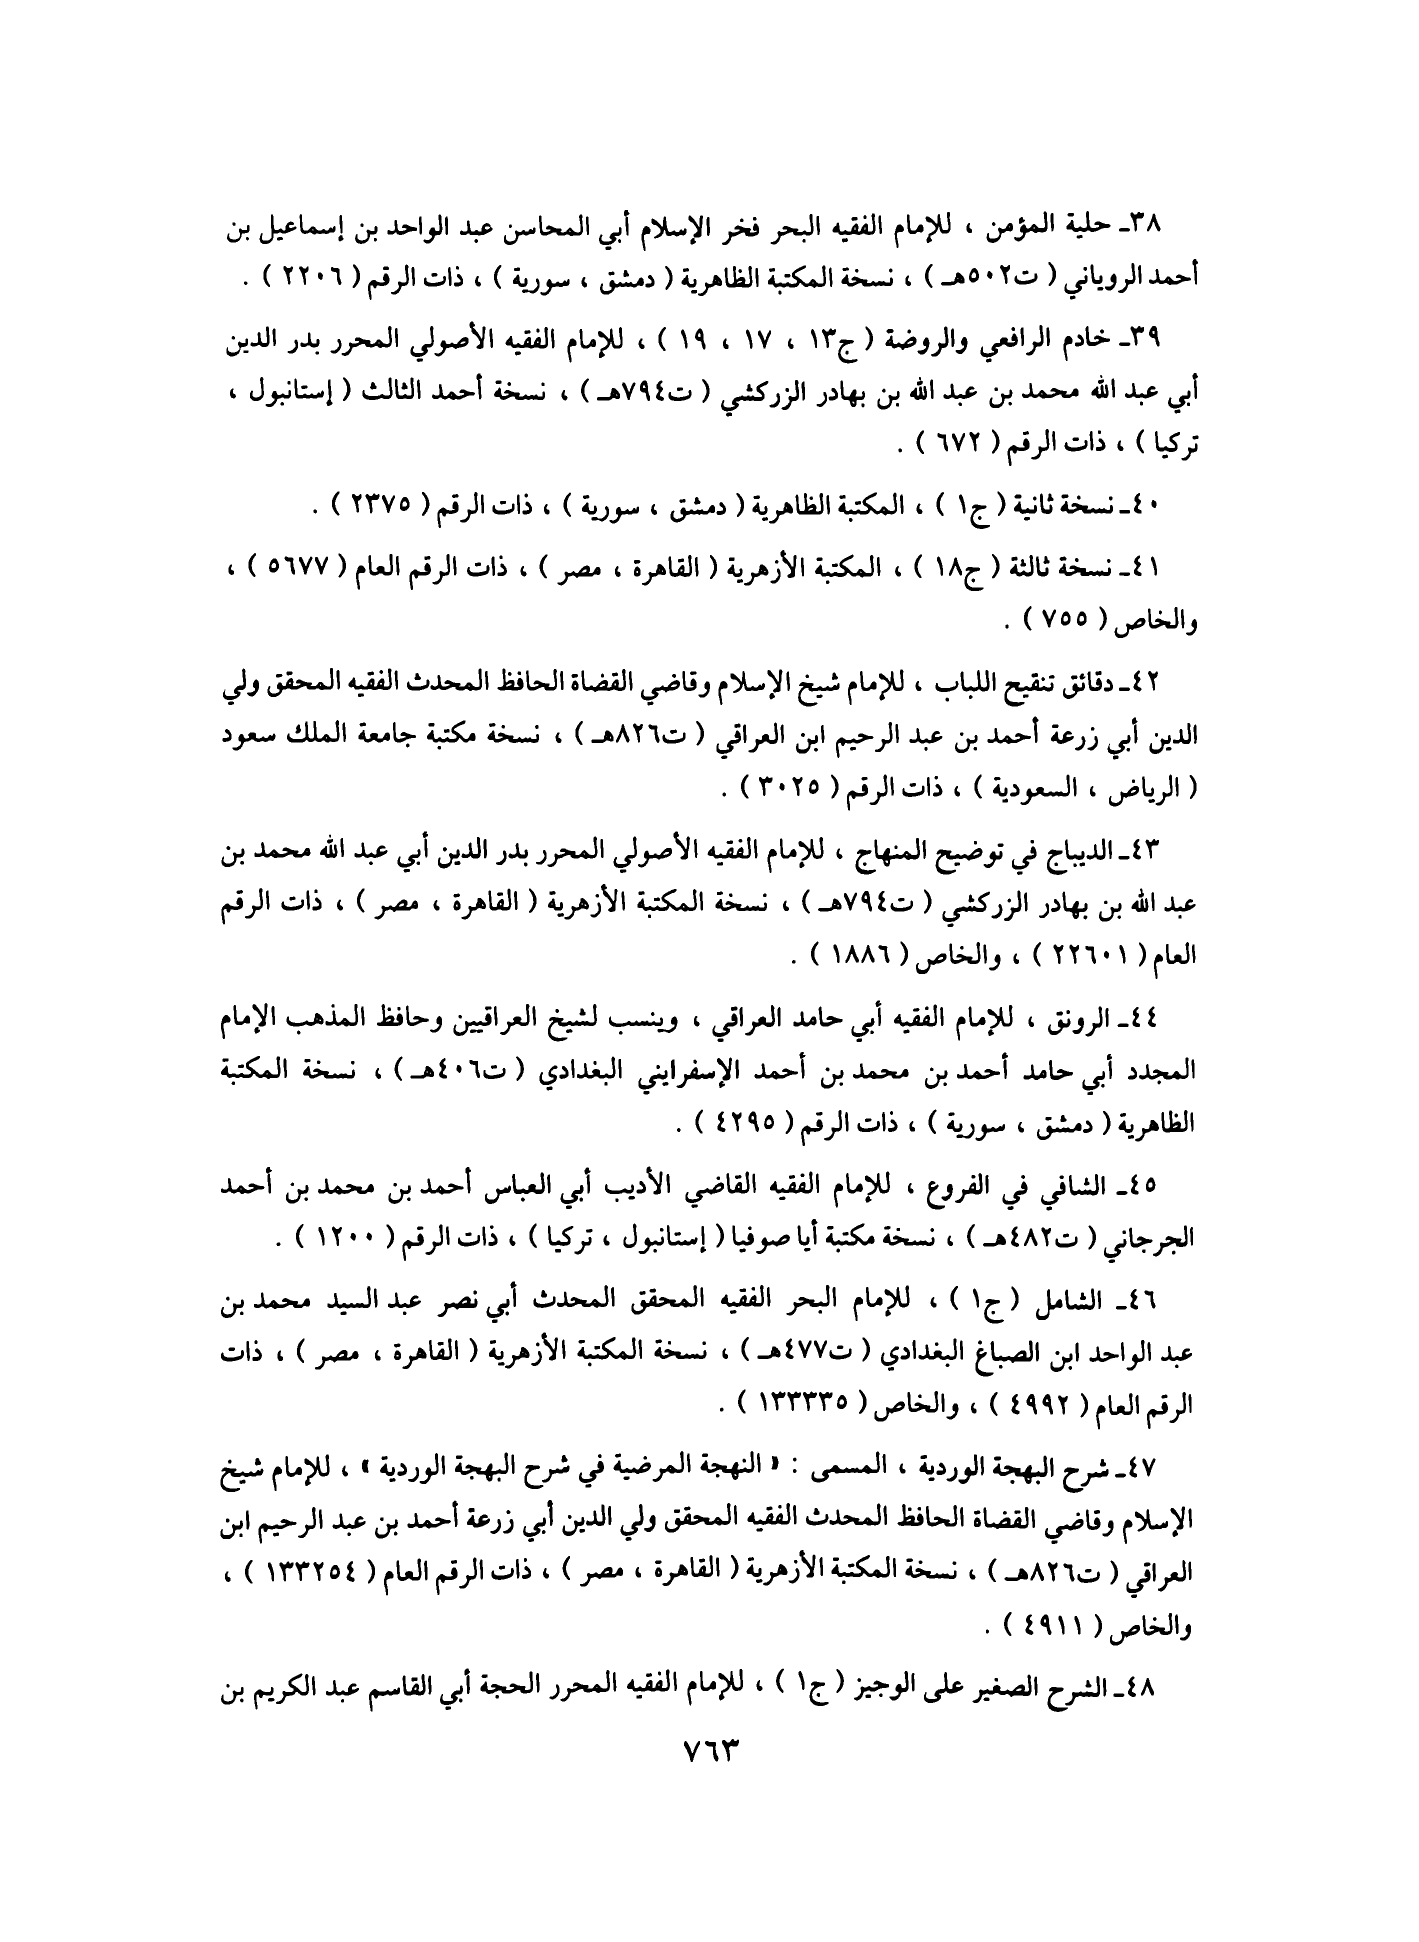 ٣٨ـ حلية المؤمن ، للإمام الفقيه البحر فخر الإسلام أبي المحاسن عبد الواحد بن إسماعيل بن
أحمد الروياني ( ت٥٠٢هـ ) ، نسخة المكتبة الظاهرية ( دمشق ، سورية ) ، ذات الرقم ( ٢٢٠٦ ) .
٣٩ـ خادم الرافعي والروضة ( ج١٣ ، ١٧ ، ١٩ ) ، للإمام الفقيه الأصولي المحرر بدر الدين
أبي عبد الله محمد بن عبد الله بن بهادر الزركشي ( ت٧٩٤هـ ) ، نسخة أحمد الثالث ( إستانبول ،
تركيا ) ، ذات الرقم ( ٦٧٢ ) .
٤٠ـ نسخة ثانية ( ج١ ) ، المكتبة الظاهرية ( دمشق ، سورية ) ، ذات الرقم ( ٢٣٧٥ ) .
٤١ـ نسخة ثالثة ( ج١٨ ) ، المكتبة الأزهرية ( القاهرة ، مصر ) ، ذات الرقم العام ( ٥٦٧٧ ) ،
والخاص ( ٧٥٥ ) .
٤٢ـ دقائق تنقيح اللباب ، للإمام شيخ الإسلام وقاضي القضاة الحافظ المحدث الفقيه المحقق ولي
الدين أبي زرعة أحمد بن عبد الرحيم ابن العراقي ( ت٨٢٦هـ ) ، نسخة مكتبة جامعة الملك سعود
( الرياض ، السعودية ) ، ذات الرقم ( ٣٠٢٥ ) .
٤٣ـ الديباج في توضيح المنهاج ، للإمام الفقيه الأصولي المحرر بدر الدين أبي عبد الله محمد بن
عبد الله بن بهادر الزركشي ( ت٧٩٤هـ ) ، نسخة المكتبة الأزهرية ( القاهرة ، مصر ) ، ذات الرقم
العام ( ٢٢٦٠١ ) ، والخاص ( ١٨٨٦ ) .
٤٤ـ الرونق ، للإمام الفقيه أبي حامد العراقي ، وينسب لشيخ العراقيين وحافظ المذهب الإمام
المجدد أبي حامد أحمد بن محمد بن أحمد الإسفرايني البغدادي ( ت٤٠٦هـ ) ، نسخة المكتبة
الظاهرية ( دمشق ، سورية ) ، ذات الرقم ( ٤٢٩٥ ) .
٤٥ـ الشافي في الفروع ، للإمام الفقيه القاضي الأديب أبي العباس أحمد بن محمد بن أحمد
الجرجاني ( ت٤٨٢هـ ) ، نسخة مكتبة أيا صوفيا ( إستانبول ، تركيا ) ، ذات الرقم ( ١٢٠٠ ) .
٤٦ـ الشامل ( ج١ ) ، للإمام البحر الفقيه المحقق المحدث أبي نصر عبد السيد محمد بن
عبد الواحد ابن الصباغ البغدادي ( ت٤٧٧هـ ) ، نسخة المكتبة الأزهرية ( القاهرة ، مصر ) ، ذات
الرقم العام ( ٤٩٩٢ ) ، والخاص ( ١٣٣٣٣٥ ) .
٤٧ـ شرح البهجة الوردية ، المسمى : « النهجة المرضية في شرح البهجة الوردية » ، للإمام شيخ
الإسلام وقاضي القضاة الحافظ المحدث الفقيه المحقق ولي الدين أبي زرعة أحمد بن عبد الرحيم ابن
العراقي ( ت٨٢٦هـ ) ، نسخة المكتبة الأزهرية ( القاهرة ، مصر ) ، ذات الرقم العام ( ١٣٣٢٥٤ ) ،
والخاص ( ٤٩١١ ) .
٤٨ـ الشرح الصغير على الوجيز ( ج١ ) ، للإمام الفقيه المحرر الحجة أبي القاسم عبد الكريم بن
٧٦٣